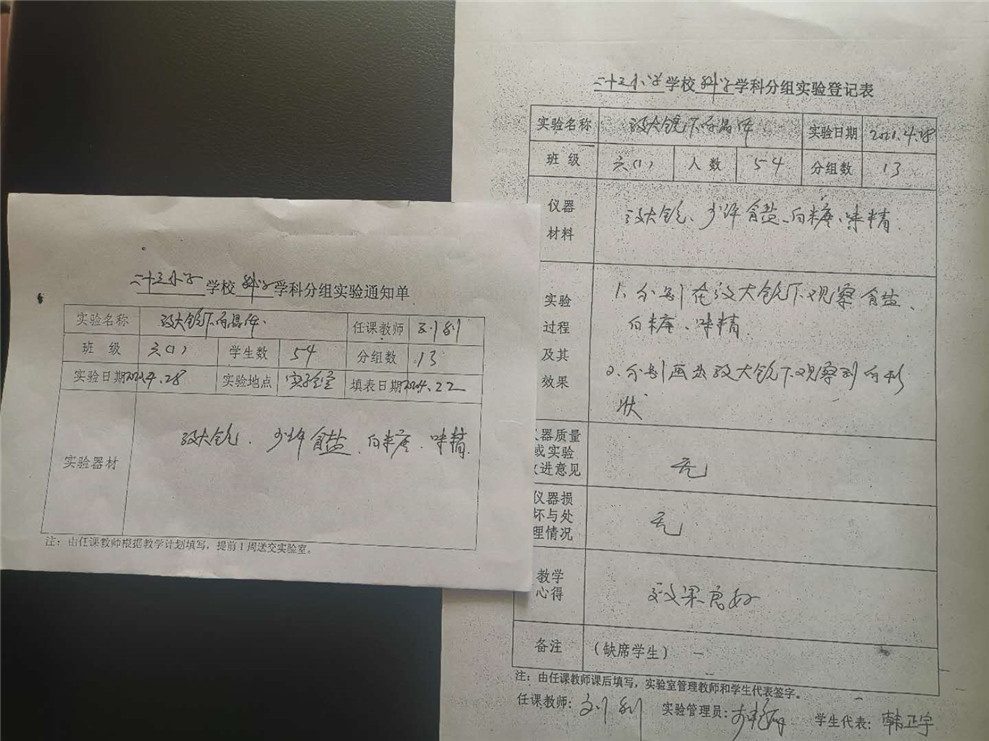 二十三小学学校科学学科分组实验通知单
实验名称 放大镜下的晶体 任课教师 刘钊
班 级 六(1) 学生数 54 分组数 13
实验日期2021.4.28 实验地点 实验室 填表日期2021.4.22
实验器材 放大镜、少许食盐、白糖、味精.
注：由任课教师根据教学计划填写，提前1周送交实验室。
二十三小学学校科学学科分组实验登记表
实验名称 放大镜下的晶体 实验日期 2021.4.28
班 级 六(1) 人 数 54 分组数 13
仪器
材料
放大镜、少许食盐、白糖、味精.
实验
过程
及其
效果
1. 分别在放大镜下观察食盐、
白糖、味精.
2. 分别画出放大镜下观察到的形
状
仪器质量
或实验
改进意见
无
仪器损
坏与处
理情况
无
教学
心得
效果良好
备注 (缺席学生) —
注：由任课教师课后填写，实验室管理教师和学生代表签字。
任课教师: 刘钊 实验管理员: 学生代表: 韩正宇